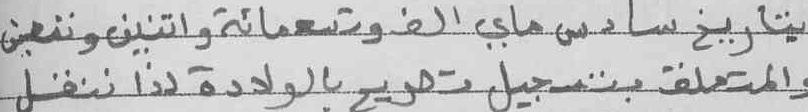 بتاريخ سادس ماي الف وتسعمائة واثنين وتسعين
والمتعلقة بتسجيل تصريح بالولادة لذا ننفذ